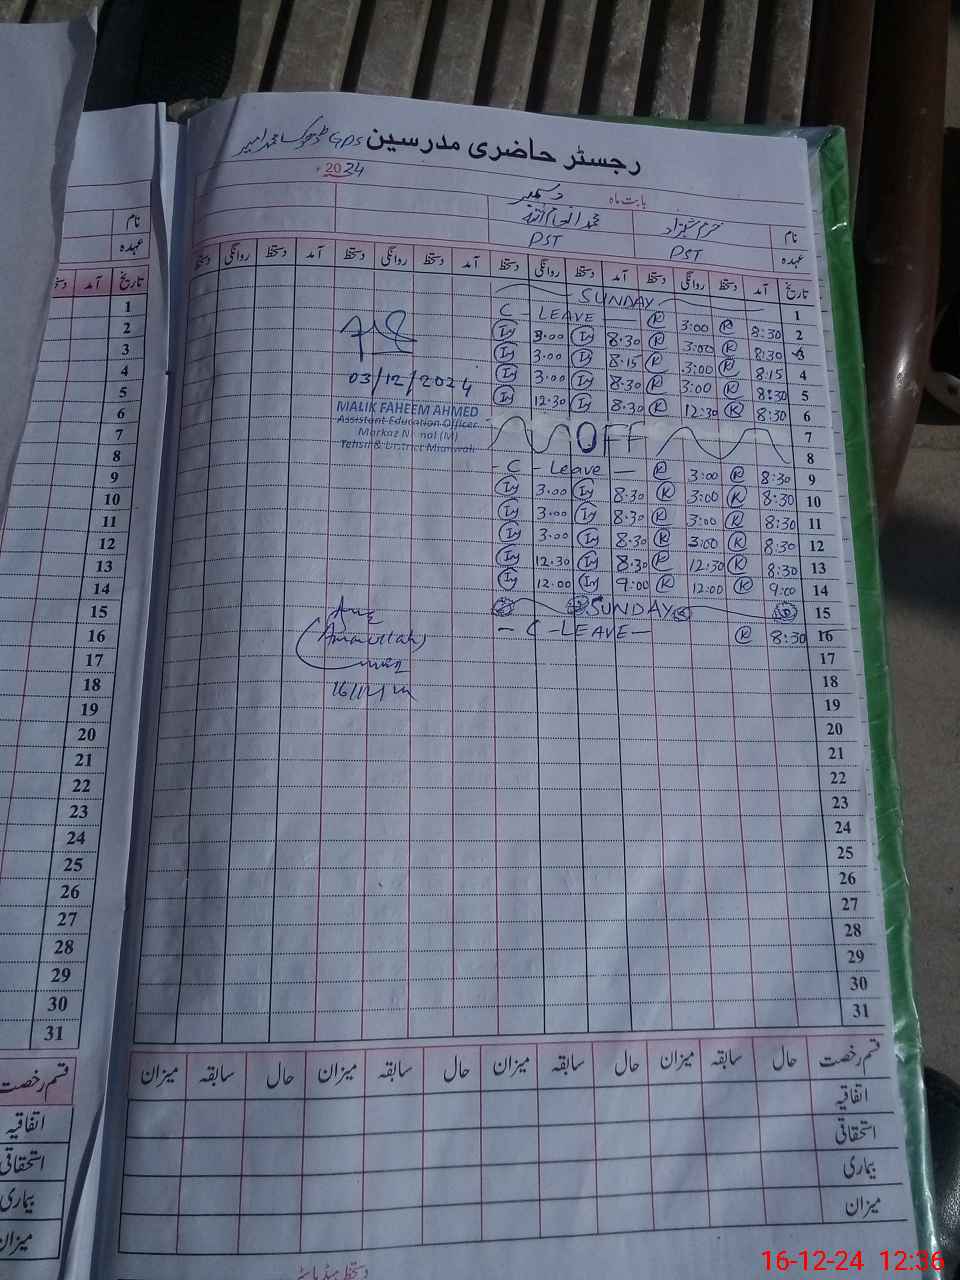 رجسٹر حاضری مدرسین GPS ڈھوک محمد امیر
2024
بابت ماہ دسمبر
نام خرم شہزاد محمد
عہدہ PST PST
تاریخ آمد دستخط روانگی دستخط آمد دستخط روانگی دستخط آمد دستخط روانگی دستخط آمد دستخط روانگی دستخط
1 SUNDAY
2 8:30 K 3:00 K C - LEAVE -
3 8:30 K 3:00 K 8.30 Iy 3.00 Iy
4 8:15 K 3:00 K 8.15 Iy 3.00 Iy
5 8:30 K 3:00 K 8.30 Iy 3.00 Iy
6 8:30 K 12:30 K 8.30 Iy 12.30 Iy
7 OFF
8
9 8:30 K 3:00 K - C - Leave -
10 8:30 K 3:00 K 8.30 Iy 3.00 Iy
11 8:30 K 3:00 K 8.30 Iy 3.00 Iy
12 8:30 K 3:00 K 8.30 Iy 3.00 Iy
13 8:30 K 12:30 K 8.30 Iy 12.30 Iy
14 9:00 K 12:00 K 9:00 Iy 12.00 Iy
15 SUNDAY
16 8:30 K - C - LEAVE -
17
18
19
20
21
22
23
24
25
26
27
28
29
30
31
03/12/2024
MALIK FAHEEM AHMED
Assistant Education Officer
Markaz (M)
Tehsil & District Mianwali
Amanullah
قسم رخصت حال سابقہ میزان حال سابقہ میزان حال سابقہ میزان حال سابقہ میزان
اتفاقیہ
استحقاقی
بیماری
میزان
نام
عہدہ
تاریخ آمد
1
2
3
4
5
6
7
8
9
10
11
12
13
14
15
16
17
18
19
20
21
22
23
24
25
26
27
28
29
30
31
قسم رخصت
اتفاقیہ
استحقاقی
بیماری
میزان
16-12-24 12:36